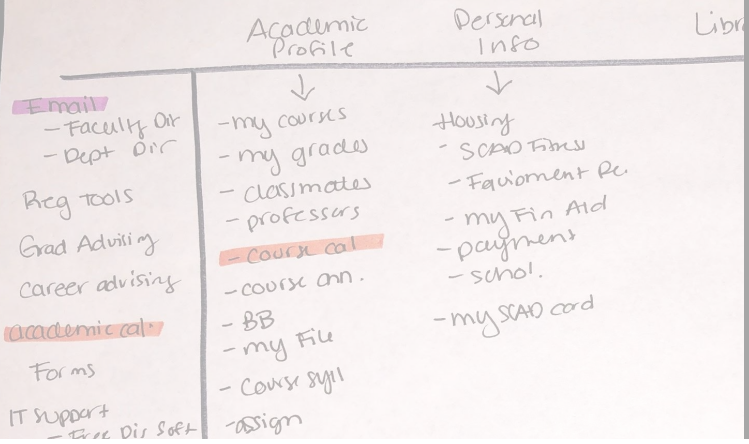 Academic
Profile
Personal
Info
Libr
Email
- Faculty Dir
- Dept Dir
Reg Tools
Grad Advising
Career advising
academic cal.
Forms
IT Support
- Free Dis Soft
- my courses
- my grades
- classmates
- professors
- course cal
- course ann.
- BB
- my File
- Course syll
- assign
Housing
- SCAD Fitness
- my Fin Aid
- payment
- schol.
- my SCAD card